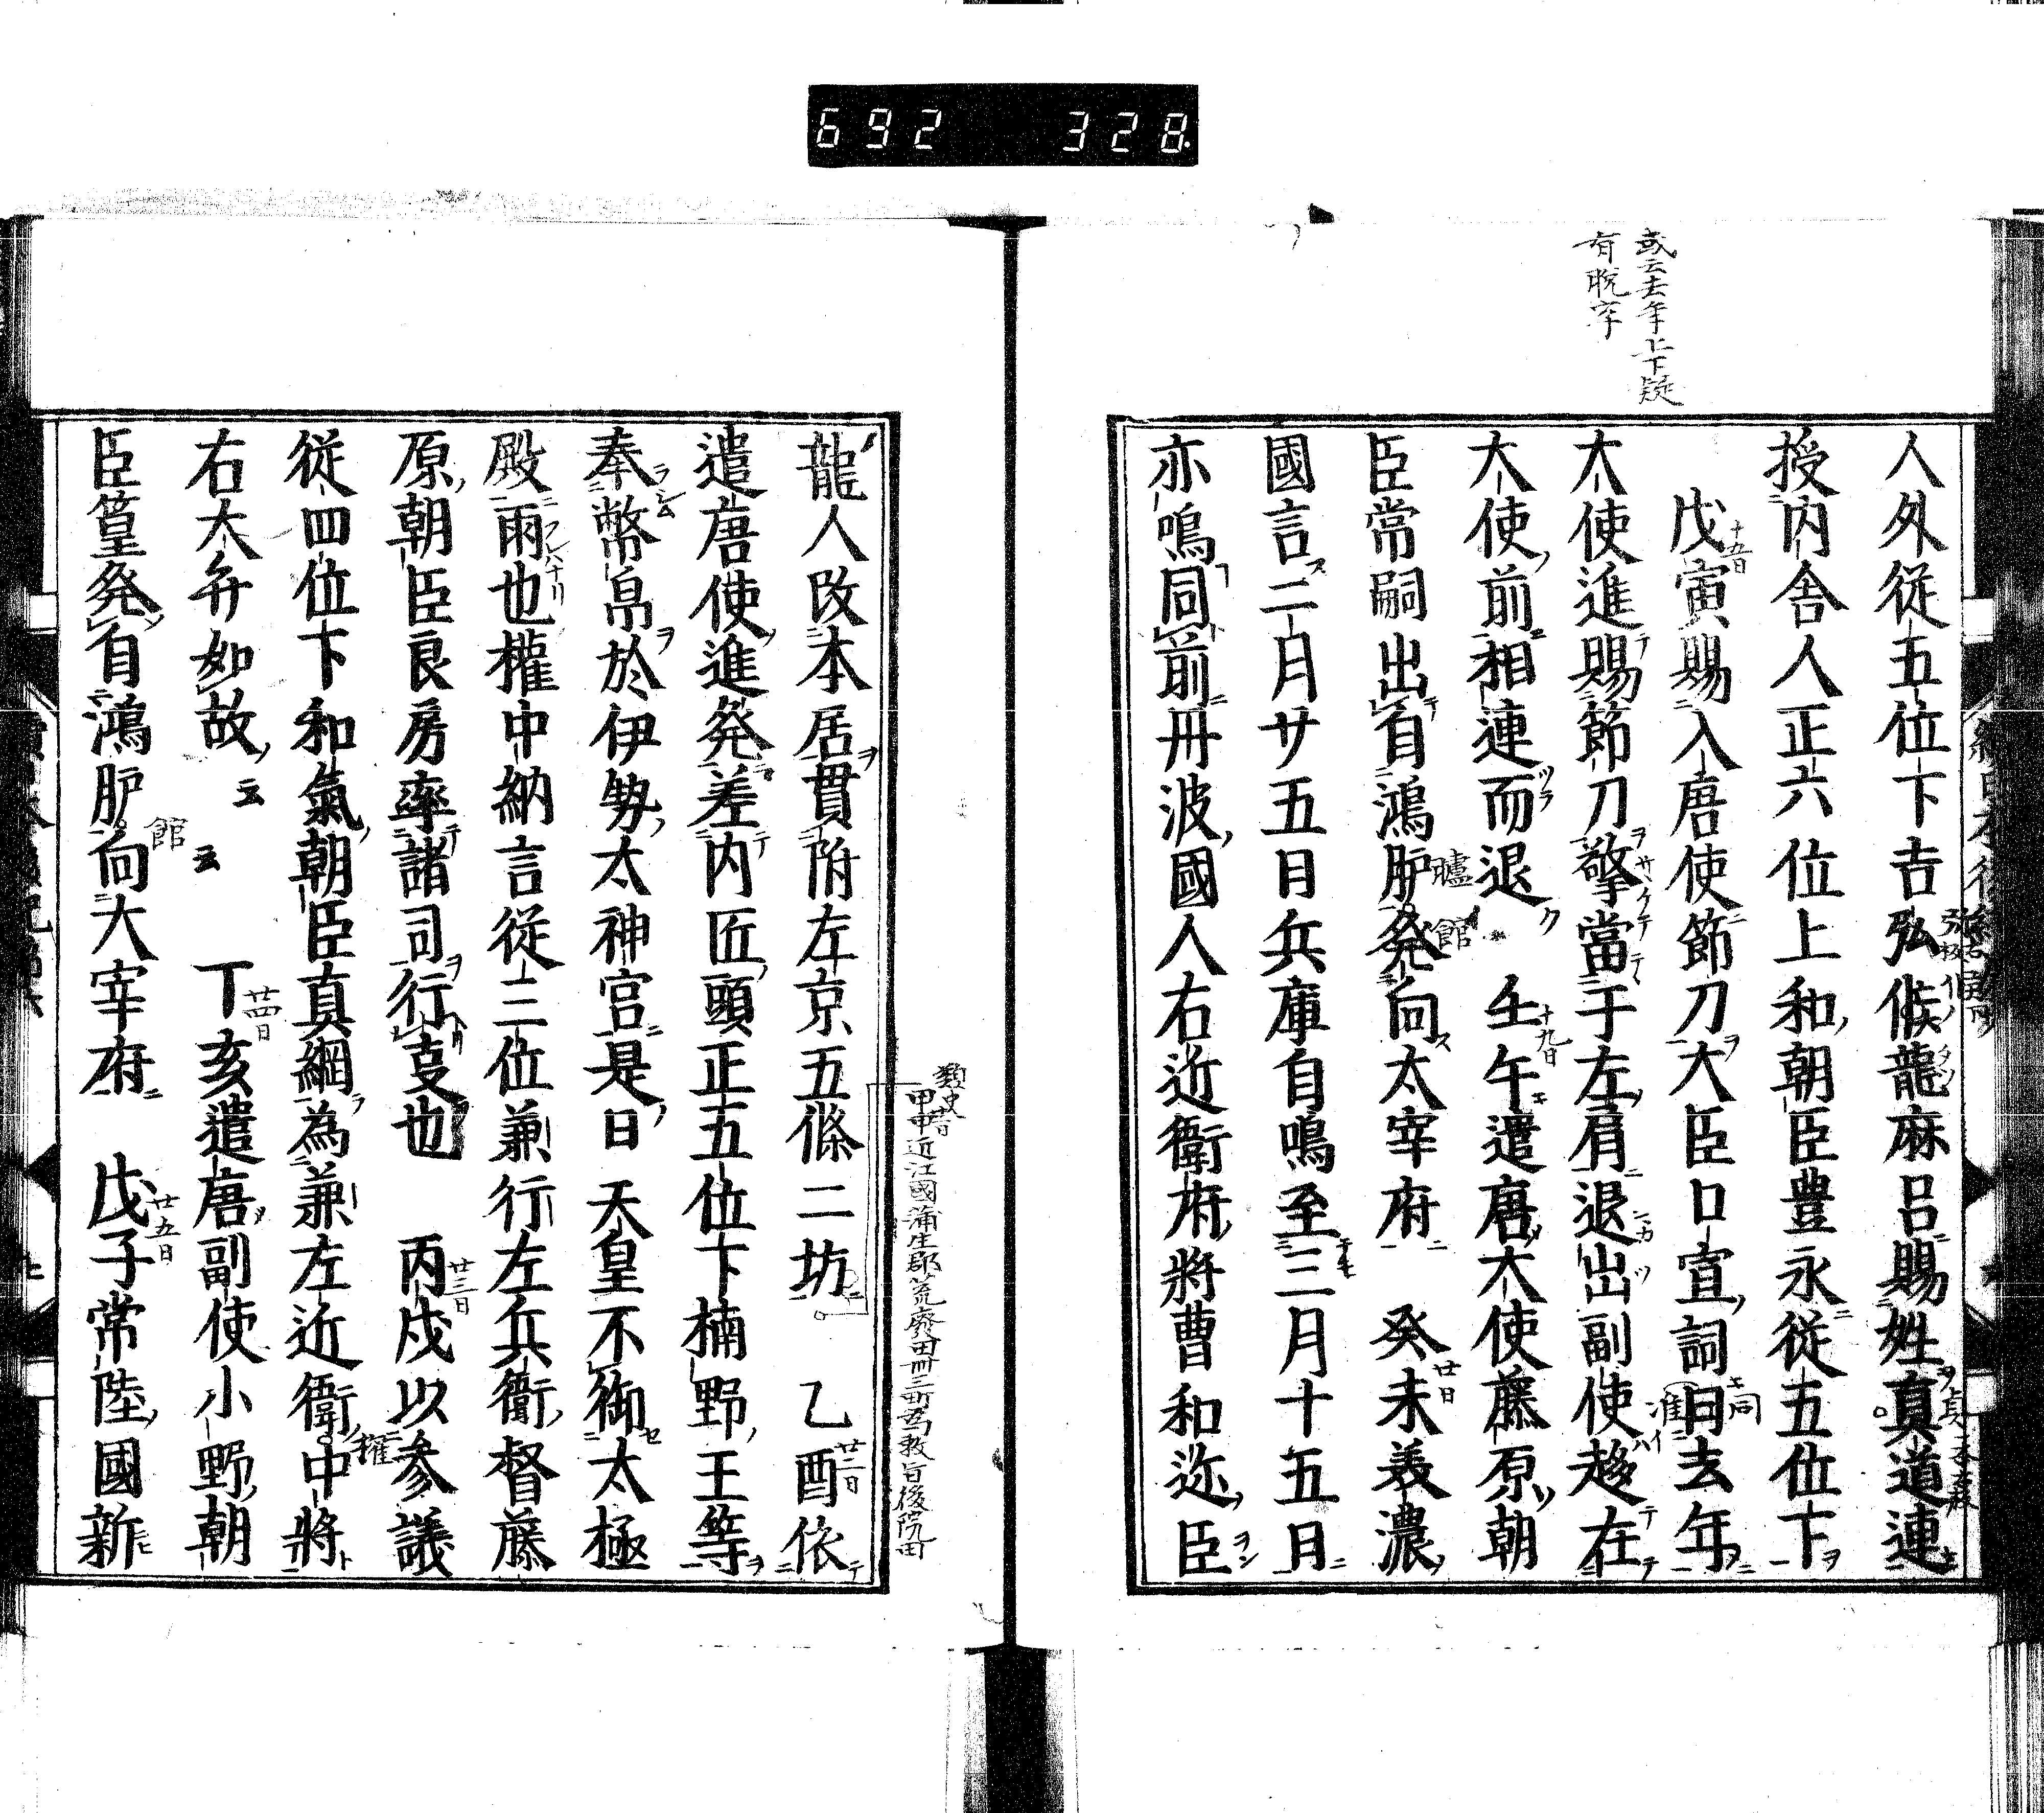 692 328
或云去年上下疑
有脱字
人外従五位下吉弘候龍麻呂賜姓真道連
授内舎人正六位上和朝臣豊永従五位下
戊寅賜入唐使節刀大臣口宣詞曰去年
十五日
同
准
大使進賜節刀擎當于左肩退出副使趍在
大使前相連而退 壬午遣唐大使藤原朝
十九日
臣常嗣出自鴻胪発向太宰府 癸未美濃
臚
館
廿日
國言二月廿五日兵庫自鳴至三月十五日
亦鳴同前丹波國人右近衛府將曹和迩臣
類史
甲申近江國蒲生郡荒廢田卅三町為敕旨後院田
龍人改本居貫附左京五條二坊 乙酉依
廿二日
遣唐使進発差内匠頭正五位下楠野王等
奉幣帛於伊勢太神宮是日 天皇不御太極
殿雨也權中納言従三位兼行左兵衛督藤
原朝臣良房率諸司行叓也 丙戌以参議
廿三日
従四位下和氣朝臣真綱為兼左近衛中將
權
右大弁如故云云 丁亥遣唐副使小野朝
廿四日
臣篁発自鴻胪向大宰府 戊子常陸國新
館
廿五日